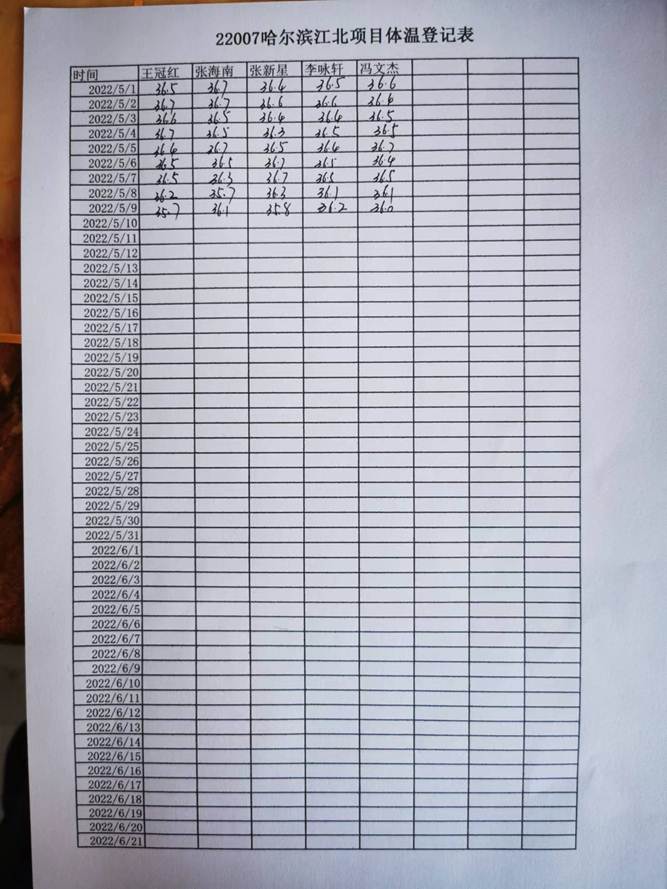 22007哈尔滨江北项目体温登记表
时间 王冠红 张海南 张新星 李咏轩 冯文杰
2022/5/1 36.5 36.7 36.4 36.5 36.6
2022/5/2 36.7 36.7 36.6 36.6 36.4
2022/5/3 36.6 36.5 36.4 36.4 36.5
2022/5/4 36.7 36.5 36.3 36.5 36.5
2022/5/5 36.4 36.5 36.4 36.7
2022/5/6 36.5 36.5 36.7 36.5 36.4
2022/5/7 36.5 36.3 36.7 36.5 36.5
2022/5/8 36.2 35.7 36.3 36.1 36.1
2022/5/9 35.7 36.1 35.8 36.2 36.0
2022/5/10
2022/5/11
2022/5/12
2022/5/13
2022/5/14
2022/5/15
2022/5/16
2022/5/17
2022/5/18
2022/5/19
2022/5/20
2022/5/21
2022/5/22
2022/5/23
2022/5/24
2022/5/25
2022/5/26
2022/5/27
2022/5/28
2022/5/29
2022/5/30
2022/5/31
2022/6/1
2022/6/2
2022/6/3
2022/6/4
2022/6/5
2022/6/6
2022/6/7
2022/6/8
2022/6/9
2022/6/10
2022/6/11
2022/6/12
2022/6/13
2022/6/14
2022/6/15
2022/6/16
2022/6/17
2022/6/18
2022/6/19
2022/6/20
2022/6/21